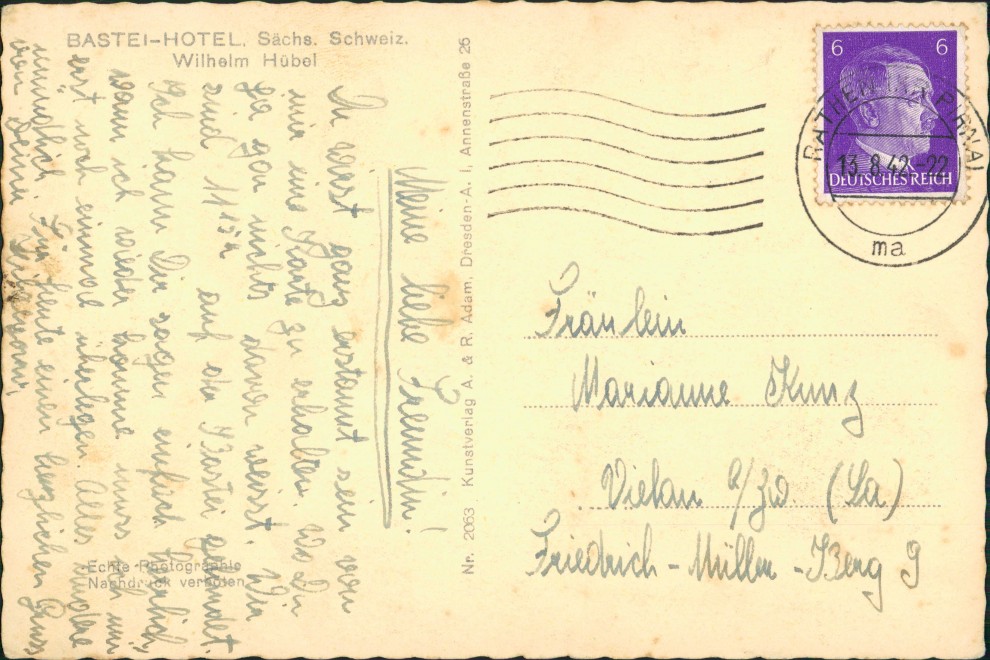 BASTEI-HOTEL, Sächs. Schweiz.
Wilhelm Hübel
Meine liebe Freundin!
Du wirst ganz erstaunt sein von
mir eine Karte zu erhalten. Wo Du
ja gar nichts davon weisst. Wir
sind auf der Bastei gelandet.
Ich kann Dir sagen einfach herrlich,
wann ich wieder komme muss ich mir
erst noch einmal überlegen. Alles andere
mündlich. Für heute einen herzlichen Gruss
von Deiner
Echte Photographie
Nachdruck verboten
Nr. 2063 Kunstverlag A. & R. Adam, Dresden-A. 1, Annenstraße 26
6 6
DEUTSCHES REICH
RATHEN PIRNA
13.8.42-22
ma
Fräulein
Marianne Kunz
Vielau b/Zw (Sa)
Friedrich-Müller-Berg 9